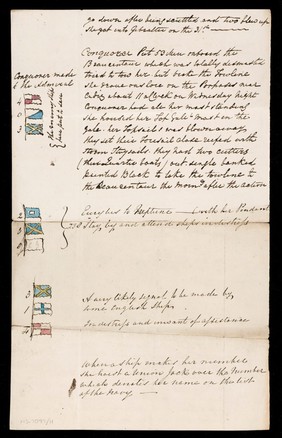 go down after being scuttled and two blew up
& got into Gibraltar on the 31st
Conqueror Put 53 Men onboard the
Bucentaure which was totally dismasted
tried to tow her but broke the Towline
she drove on shore on the Porpoises near
Cadiz about 11 o'Clock on Wednesday Night
Conqueror made
to the
4
0
2
Conqueror had all her masts standing
she her Top Gall. Mast in the
gale her Topsails was blown away
they set their Foresail close reefed with
storm Staysails they had two cutters
(their Quarter boats) out single banked
painted Black to take the towline to
the Bucentaure the Morng after the action
2
Euryalus to Neptune with her Pendant
to Stay by and attend ships in distress
3
1
4
A very likely signal to be made by
some English Ships
In distress and in want of assistance
When a ship makes her number
she hoists a Union Jack over the Number
which denotes her name on the list
of the Navy